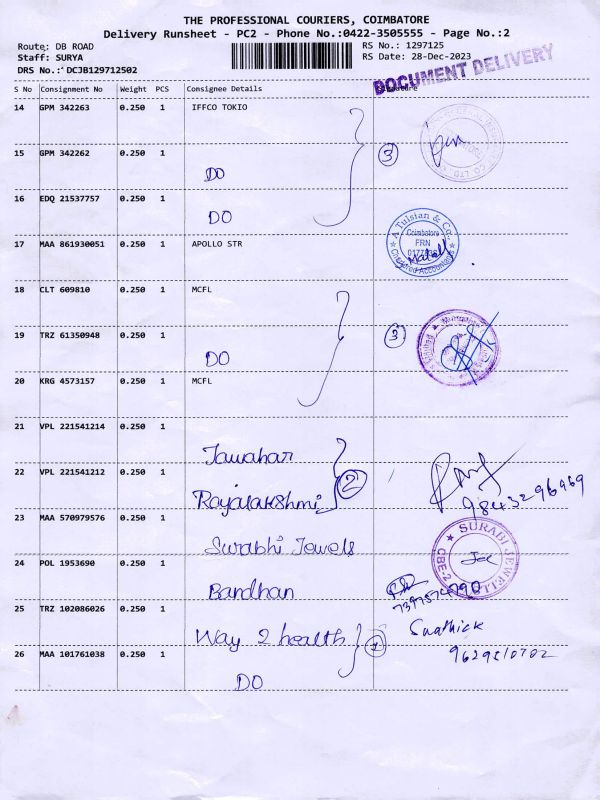 THE PROFESSIONAL COURIERS, COIMBATORE
Delivery Runsheet - PC2 - Phone No.:0422-3505555 - Page No.:2
Route: DB ROAD
RS No.: 1297125
Staff: SURYA
RS Date: 28-Dec-2023
DRS No.: DCJB129712502
DOCUMENT DELIVERY
S No Consignment No Weight PCS Consignee Details Signature
14 GPM 342263 0.250 1 IFFCO TOKIO
15 GPM 342262 0.250 1
DO
3
16 EDQ 21537757 0.250 1
DO
17 MAA 861930051 0.250 1 APOLLO STR
A Tulsian & Co.
Coimbatore
FRN
Chartered Accountants
18 CLT 609810 0.250 1 MCFL
19 TRZ 61350948 0.250 1
DO
3
20 KRG 4573157 0.250 1 MCFL
21 VPL 221541214 0.250 1
Jawahar
22 VPL 221541212 0.250 1
Rajalakshmi
2
9843296969
23 MAA 570979576 0.250 1
Surabhi Jewels
SURABI JEWELL
CBE-2
24 POL 1953690 0.250 1
Bandhan
7397574790
25 TRZ 102086026 0.250 1
Way 2 health
1
Saathick
26 MAA 101761038 0.250 1
DO
9629210702